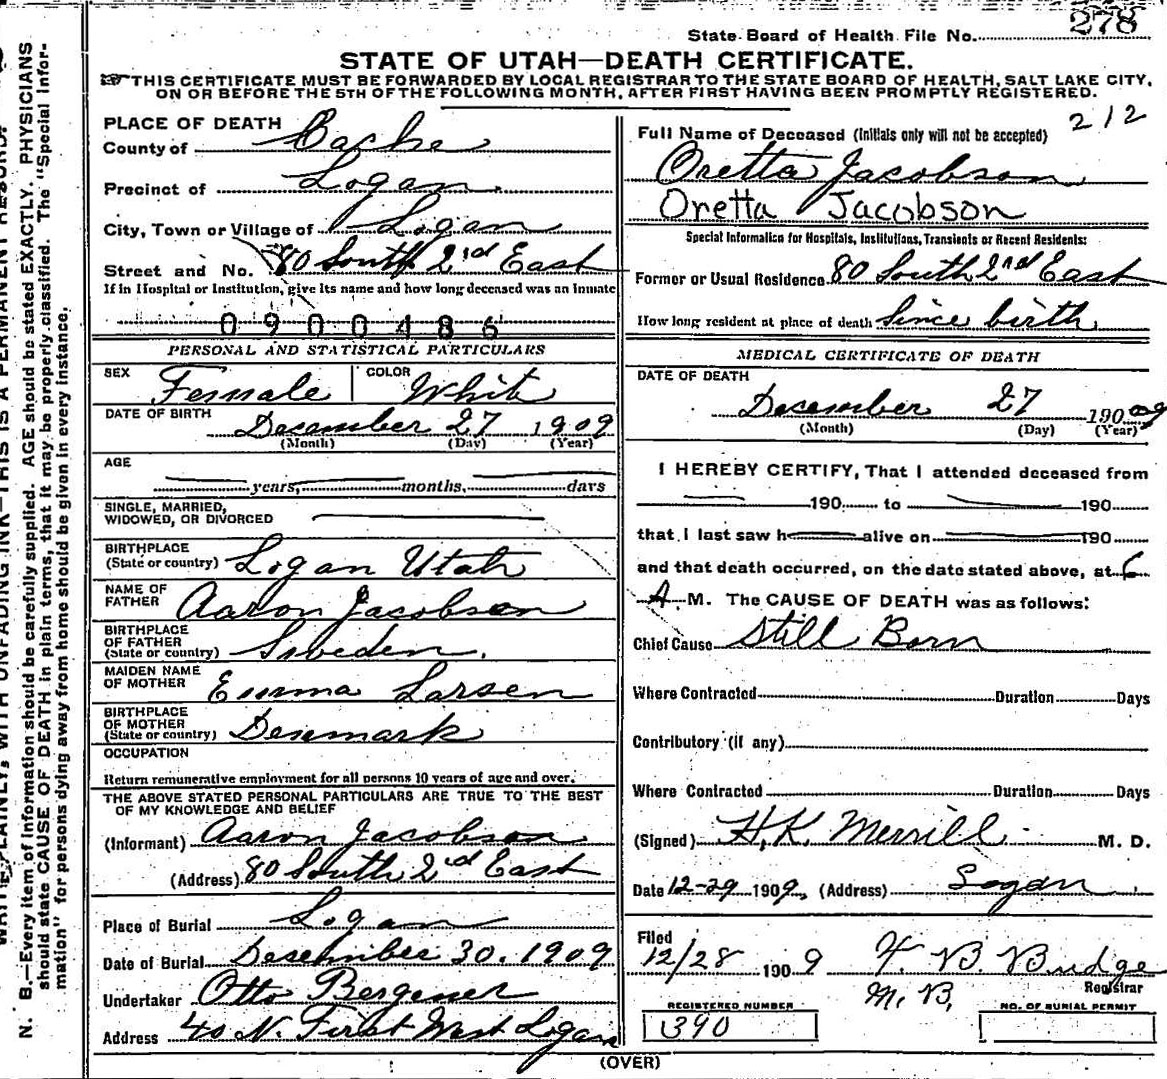 State Board of Health File No. 278
STATE OF UTAH—DEATH CERTIFICATE.
THIS CERTIFICATE MUST BE FORWARDED BY LOCAL REGISTRAR TO THE STATE BOARD OF HEALTH, SALT LAKE CITY,
ON OR BEFORE THE 5TH OF THE FOLLOWING MONTH, AFTER FIRST HAVING BEEN PROMPTLY REGISTERED.
212
PLACE OF DEATH
County of Cache
Precinct of Logan
City, Town or Village of Logan
Street and No. 80 South 2nd East
If in Hospital or Institution, give its name and how long deceased was an inmate
0900486
PERSONAL AND STATISTICAL PARTICULARS
SEX Female COLOR White
DATE OF BIRTH
December 27 1909
(Month) (Day) (Year)
AGE
years, months, days
SINGLE, MARRIED,
WIDOWED, OR DIVORCED
BIRTHPLACE
(State or country) Logan Utah
NAME OF
FATHER Aaron Jacobson
BIRTHPLACE
OF FATHER
(State or country) Sweden.
MAIDEN NAME
OF MOTHER Emma Larsen
BIRTHPLACE
OF MOTHER
(State or country) Denmark
OCCUPATION
Return remunerative employment for all persons 10 years of age and over.
THE ABOVE STATED PERSONAL PARTICULARS ARE TRUE TO THE BEST
OF MY KNOWLEDGE AND BELIEF
(Informant) Aaron Jacobson
(Address) 80 South 2nd East
Place of Burial Logan
Date of Burial December 30. 1909
Undertaker Otto
Address 40 N. First West Logan
Full Name of Deceased (Initials only will not be accepted)
Oretta Jacobson
Oretta Jacobson
Special Information for Hospitals, Institutions, Transients or Recent Residents:
Former or Usual Residence 80 South 2nd East
How long resident at place of death Since birth
MEDICAL CERTIFICATE OF DEATH
DATE OF DEATH
December 27 1909
(Month) (Day) (Year)
I HEREBY CERTIFY, That I attended deceased from
190 to 190
that I last saw h alive on 190
and that death occurred, on the date stated above, at 6
A. M. The CAUSE OF DEATH was as follows:
Chief Cause Still Born
Where Contracted Duration Days
Contributory (if any)
Where Contracted Duration Days
(Signed) H.K. Merrill M. D.
Date 12-29 1909, (Address) Logan
Filed
12/28 1909 F. B. Budge
M. B. Registrar
REGISTERED NUMBER NO. OF BURIAL PERMIT
390
(OVER)
N. B.—Every item of information should be carefully supplied. AGE should be stated EXACTLY. PHYSICIANS
should state CAUSE OF DEATH in plain terms, that it may be properly classified. The "Special Infor-
mation" for persons dying away from home should be given in every instance.